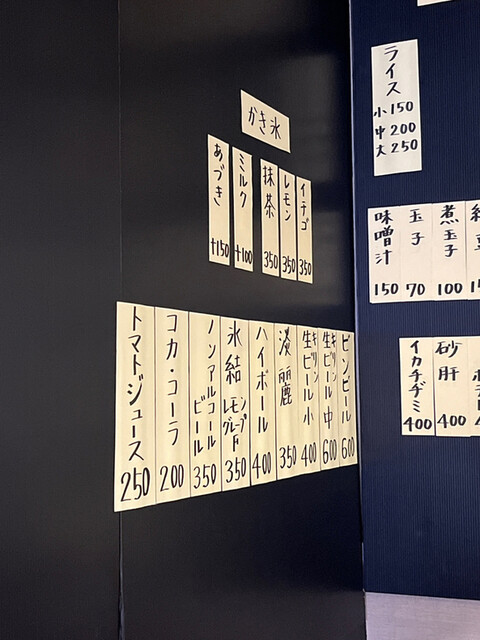 ライス
小 150
中 200
大 250
かき氷
イチゴ 350
レモン 350
抹茶 350
ミルク +100
あづき +150
煮玉子 100
玉子 70
味噌汁 150
砂肝 400
イカチヂミ 400
ビンビール 600
キリン生ビール 中 600
キリン生ビール 小 400
淡麗 350
ハイボール 400
氷結 レモン グレープF 350
ノンアルコールビール 350
コカ・コーラ 200
トマトジュース 250